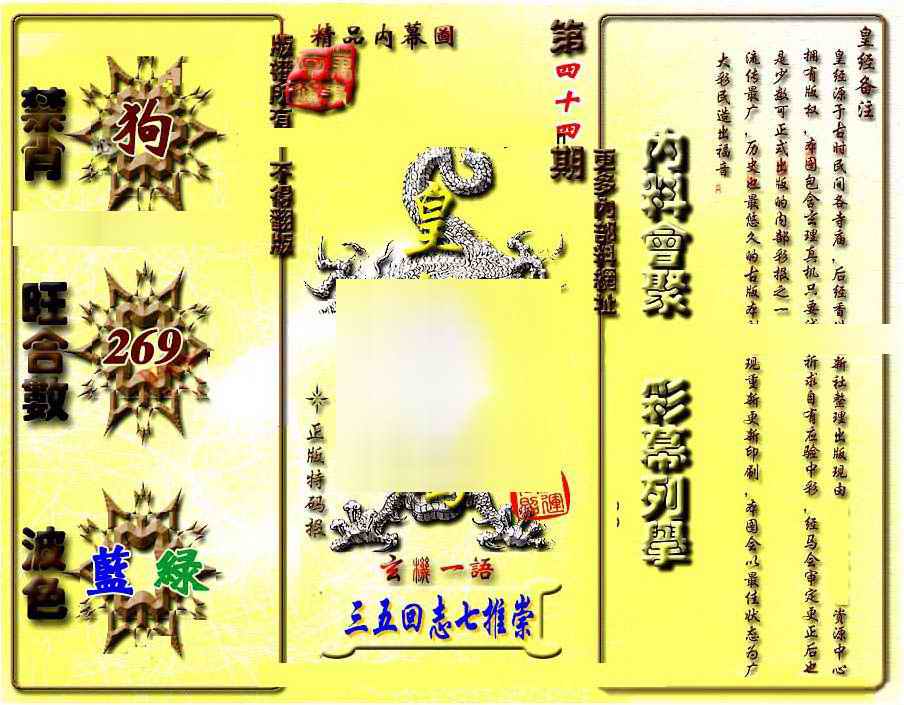 禁肖
狗
旺合數
269
波色
藍 綠
版權所有
不得翻版
精品内幕圖
第四十四期
更多内部料網址
皇
正版特码报
玄機一語
三五回志七推崇
内料會聚
彩幕列舉
皇经备注
皇经源于古时民间各寺庙,后经香
新社整理出版现由
资源中心
拥有版权,本图包含玄理真机只要
祈求自有应验中彩,经马会审定更正后也
是少数可正式出版的内部彩报之一
流传最广,历史也最悠久的古版本
现重新更新印刷,本图会以最佳状态为广
大彩民造出福音